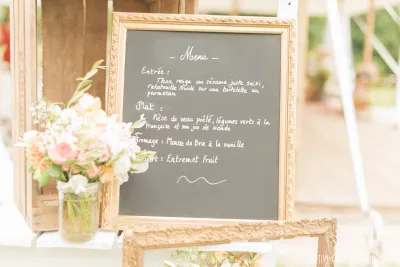 Menu
Entrée :
Thon rouge au sésame juste saisi,
ratatouille froide sur une tartelette au
parmesan
Plat :
Pièce de veau poêlé, légumes verts à la
française et son jus de viande
Fromage : Mousse de Brie à la vanille
Entremet Fruit